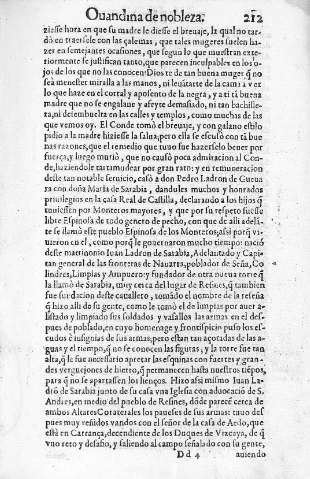 Ouandina de nobleza. 212
ziesse hora en que su madre le diesse el breuaje, la qual no tar-
dò en traersole con las çalemas, que tales mugeres suelen ha-
zer en semejantes ocasiones, que segun lo que muestran exte-
riormente se justifican tanto, que parecen inculpables en los o-
jos de los que no las conocen: Dios te dè tan buena muger q̃ no
seà menester miralla a las manos, ni leuãtarte de la cama a ver
lo que haze en el corral y aposento de la negra, y a ti tã buena
madre que no se engalane y afeyte demasiado, ni tan bachille-
ra, ni desembuelta en las calles y templos, como muchas de las
que vemos oy. El Conde tomò el breuaje, y con galano estilo
pidio a la madre hiziesse la salua, pero ella se escusò con tã bue
nas razones, que el remedio que tuuo fue hazerselo beuer por
fuerça, y luego muriò, que no causò poca admiracion al Con-
de, haziendole tartamudear por gran rato: y en remuneracion
deste tan notable seruicio, casò a don Pedro Ladron de Gueua
ra con doña Maria de Sarabia, dandules muchos y honrados
priuilegios en la casa Real de Castilla, declarando a los hijos q̃
tuuiessen por Monteros mayores, y que por su respeto fuesse
libre Espinosa de todo genero de pecho, con que de alli adelã-
te se llamò este pueblo Espinosa de los Monteros; assi porq̃ vi-
uieron en èl, como porq̃ le gouernaron mucho tiempo: naciò
deste matrimonio Iuan Ladron de Sarabia, Adelantado y Capi-
tan general de las fronteras de Nauarra, poblador de Seña, Co
lindres, Limpias y Ampuero: y fundador de otra nueua torre q̃
la llamò de Sarabia, muy cerca del lugar de Resines, q̃ tambien
fue fundacion deste cauallero, tomãdo el nombre de la reseña
q̃ hizo alli de su gente, como le tomò el de limpias por auer a-
listado y limpiado sus soldados y vasallos las armas en el des-
pues de poblado, en cuyo homenage y frontispicio puso los es-
cudos è insignias de sus armas, pero estàn tan açotadas de las a-
guas y el tiempo, q̃ no se conocen las figuras; y la torre fue tan
alta, q̃ le fue necessario apretar las esquinas con fuertes y gran-
des verguejones de hierro, q̃ permanecen hasta nuestros tiẽpos,
para q̃ no se apartassen los lienços. Hizo assi mismo Iuan La-
drõ de Sarabia junto de su casa vna Iglesia con aduocaciõ de S.
Andres, en medio del pueblo de Resines, dõde parecẽ cerca de
ambos Altares Coraterales los paueses de sus armas: tuuo des
pues muy reñidos vandos con el señor de la casa de Aedo, que
està en Carrança, decendiente de los Duques de Vizcaya, de q̃
vno seto y desafio, y saliendo al campo señalado con su gente,
D d 4 auiendo